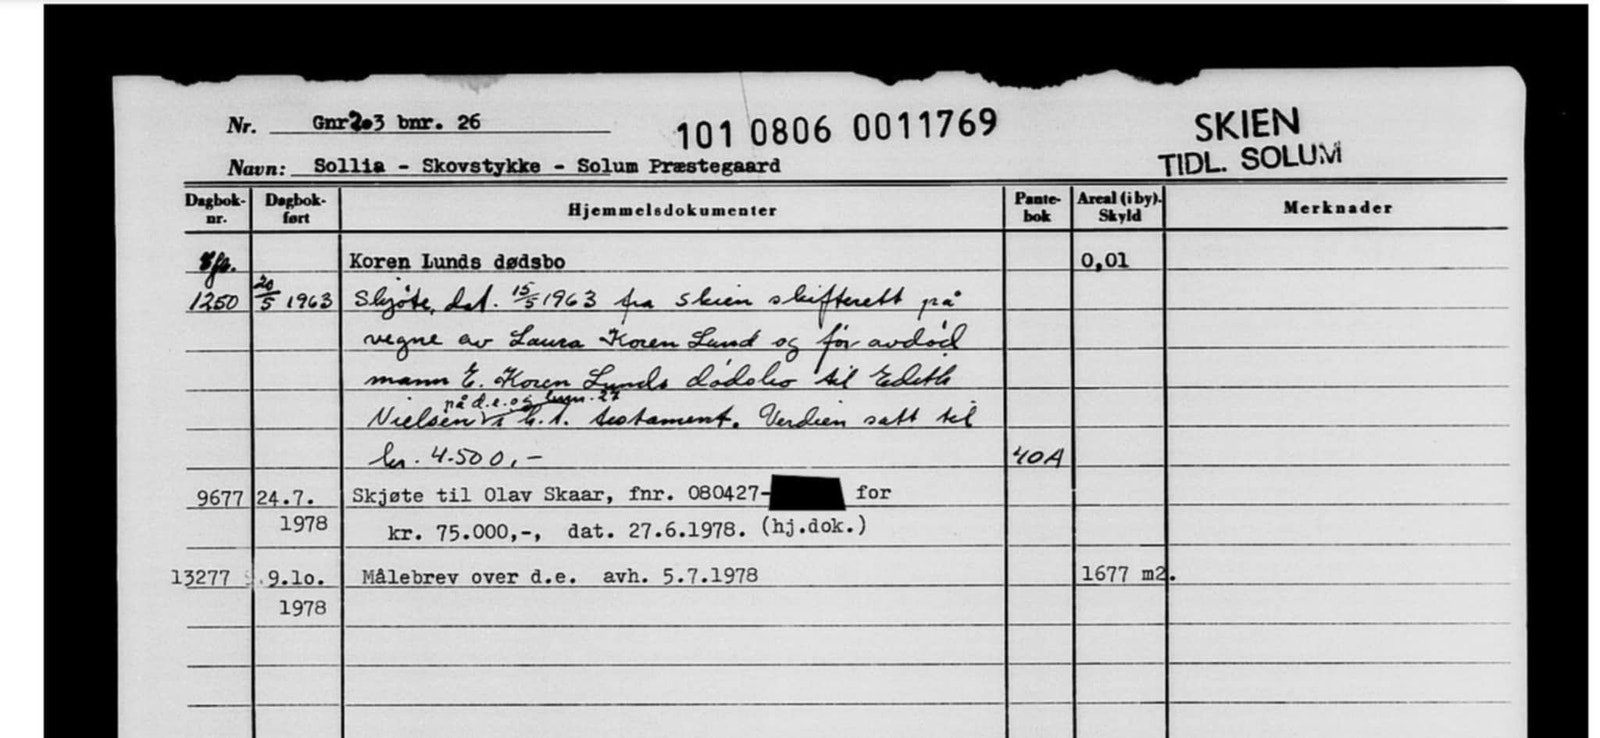 Nr. Gnr203 bnr. 26
101 0806 0011769
SKIEN
TIDL. SOLUM
Navn: Sollia - Skovstykke - Solum Præstegaard
Dagbok-nr. Dagbok-ført Hjemmelsdokumenter Pante-bok Areal (i by). Skyld Merknader
Koren Lunds dødsbo 0,01
1250 20/5 1963 Skjøte, dat. 15/5 1963 fra Skien skifterett på
vegne av Laura Koren Lund og før avdød
mann E. Koren Lunds dødsbo til Edith
på d.e. og bnr. 27
Nielsen i h.t. testament. Verdien satt til
kr. 4.500,- 40A
9677 24.7. Skjøte til Olav Skaar, fnr. 080427- for
1978 kr. 75.000,-, dat. 27.6.1978. (hj.dok.)
13277 9.10. Målebrev over d.e. avh. 5.7.1978 1677 m2.
1978